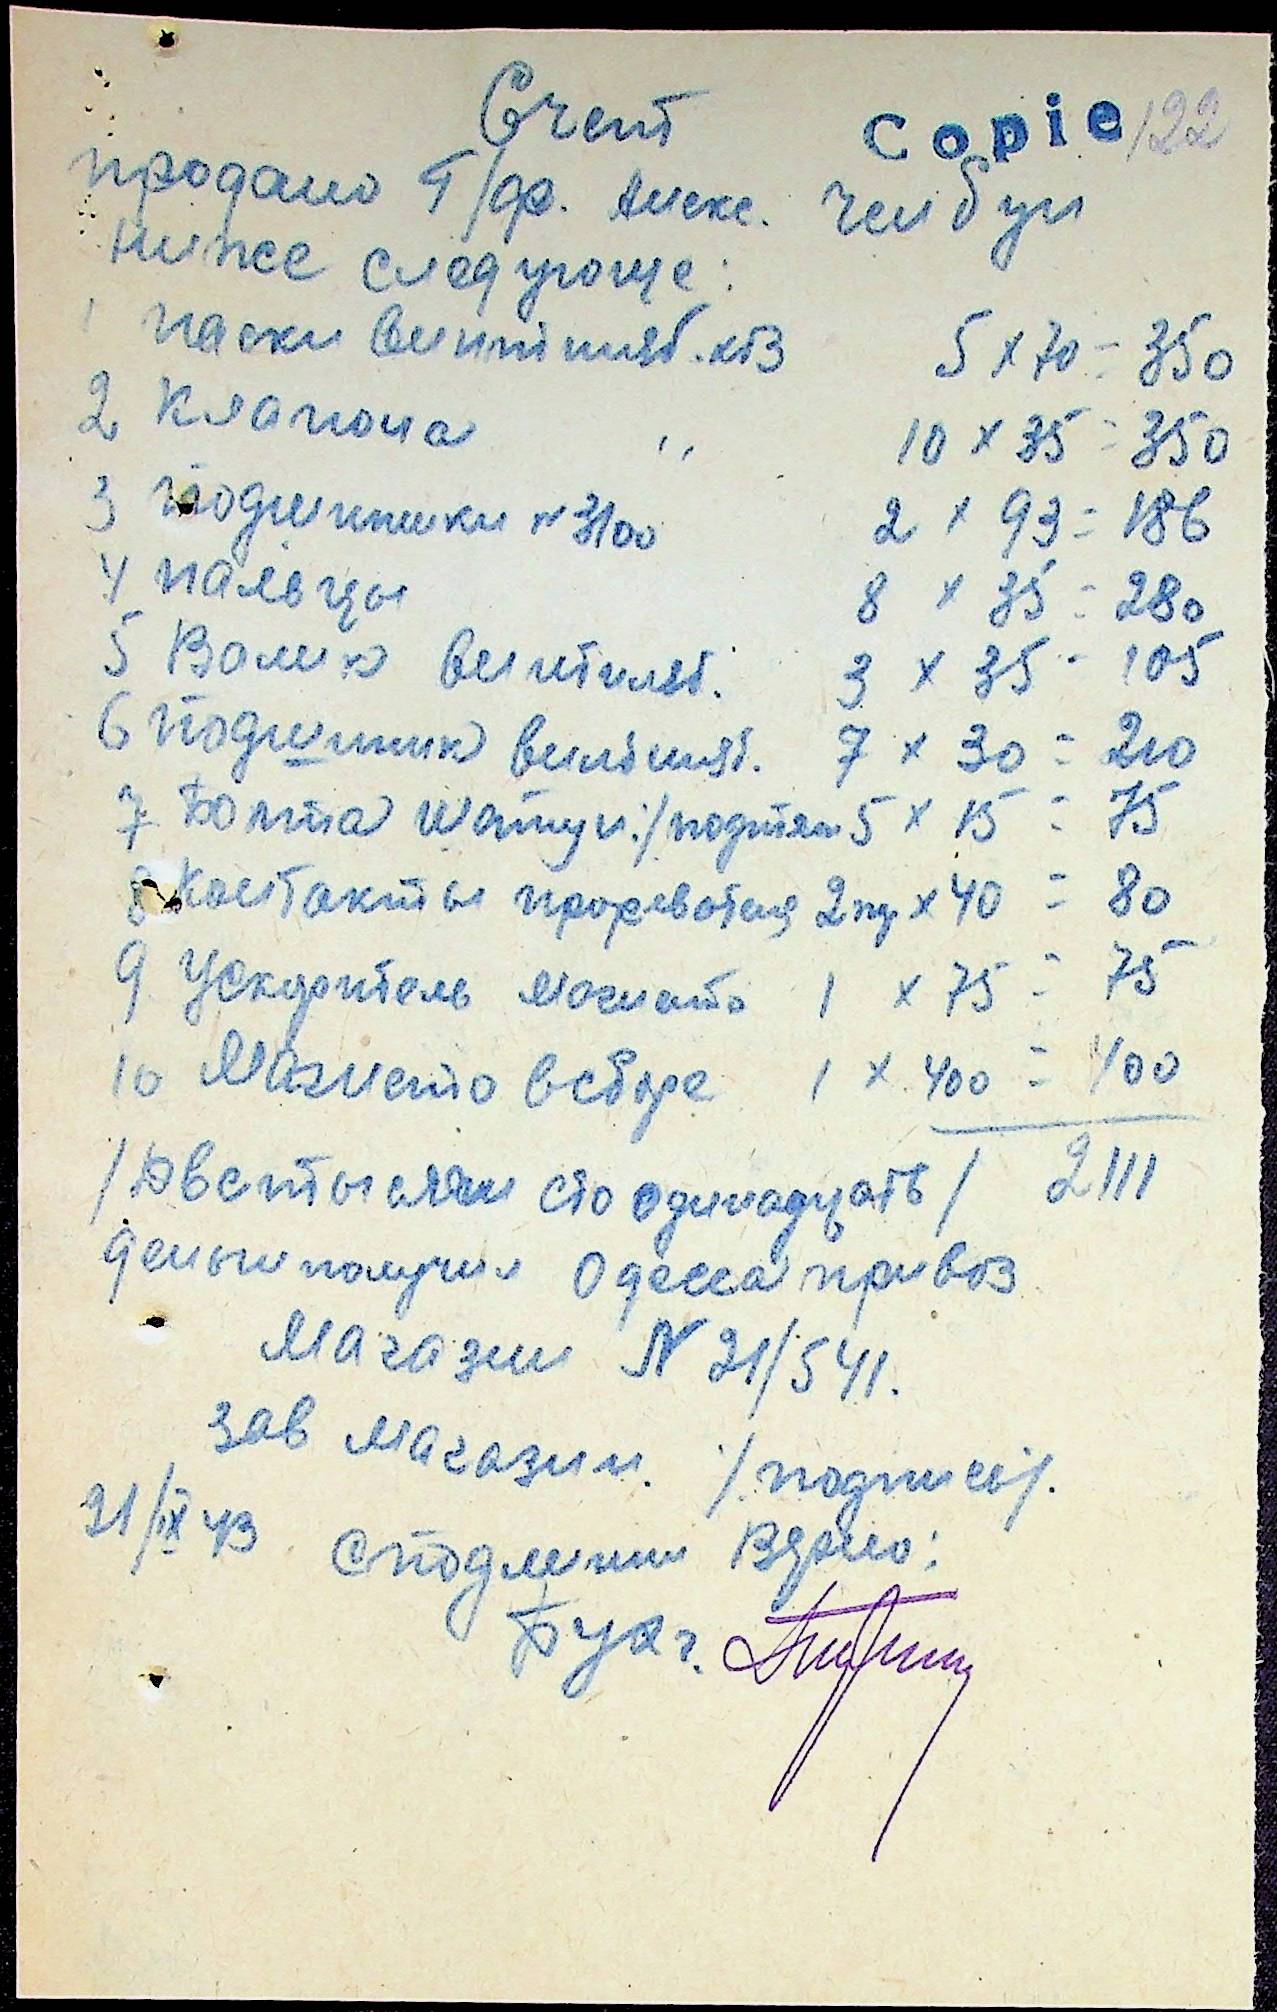 Счет
Copie 122
продано Т/ф. Алекс. Чембун
ниже следующе:
1 паски вентиляt. хтз 5 x 70 = 350
2 Клапона " 10 x 35 = 350
3 подшипники № 3100 2 x 93 = 186
4 пальцы 8 x 35 = 280
5 Валик вентилят. 3 x 35 = 105
6 подшипник вентилят. 7 x 30 = 210
7 Болта шатун. / подтяж 5 x 15 = 75
8 Контакты 2 x 40 = 80
9 Ускоритель магнето 1 x 75 = 75
10 Магнето в сборе 1 x 400 = 400
/ Две тысячи сто одинадцать / 2111
деньги получил Одесса привоз
Магазин N 21/541.
зав магазин. /подпись/.
21/IX 43 С подлинным верно:
Бухг.